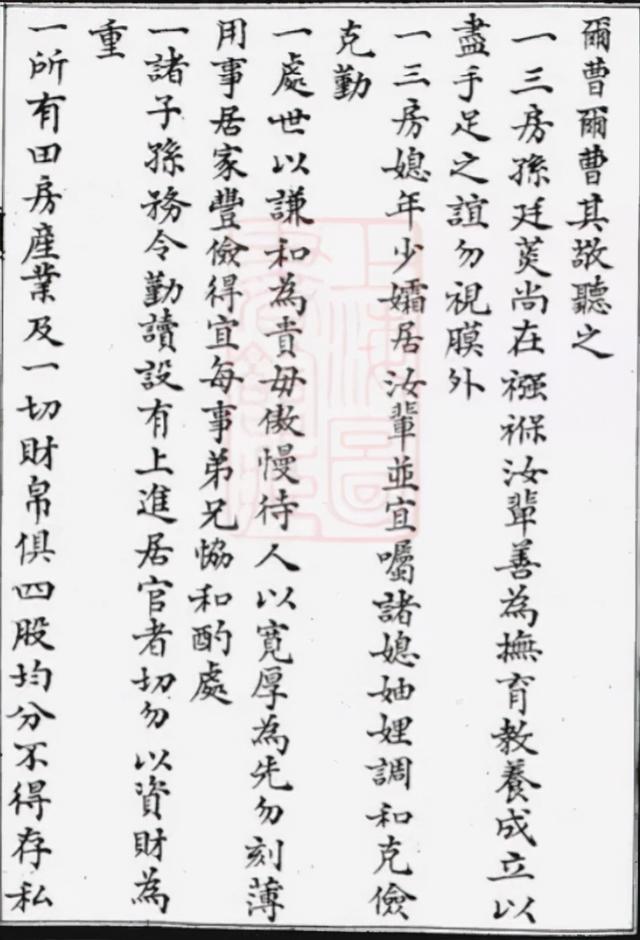 爾曹爾曹其敬聽之
一三房孫廷葵尚在襁褓汝輩善為撫育教養成立以
盡手足之誼勿視膜外
一三房媳年少孀居汝輩並宜囑諸媳妯娌調和克儉
克勤
一處世以謙和為貴毋傲慢待人以寬厚為先勿刻薄
用事居家豐儉得宜每事弟兄恊和酌處
一諸子孫務令勤讀設有上進居官者切勿以資財為
重
一所有田房產業及一切財帛俱四股均分不得存私